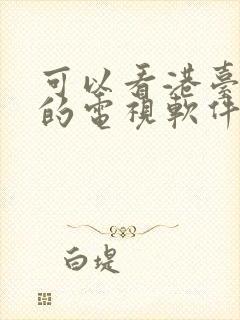 可以看港臺
的電視軟件
白堤